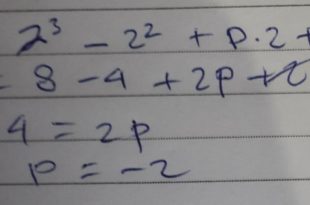 2³ - 2² + p.2 +
= 8 - 4 + 2p +
4 = 2p
p = -2